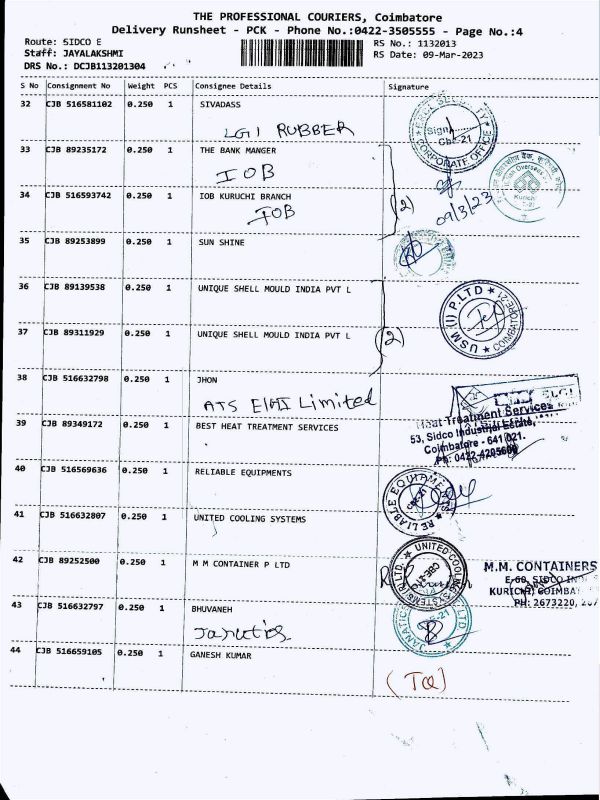 THE PROFESSIONAL COURIERS, Coimbatore
Delivery Runsheet - PCK - Phone No.:0422-3505555 - Page No.:4
Route: SIDCO E
RS No.: 1132013
Staff: JAYALAKSHMI
RS Date: 09-Mar-2023
DRS No.: DCJB113201304
S No Consignment No Weight PCS Consignee Details Signature
32 CJB 516581102 0.250 1 SIVADASS
LGI RUBBER
Sign
Cbe-21
CORPORATE OFFICE
33 CJB 89235172 0.250 1 THE BANK MANGER
IOB
34 CJB 516593742 0.250 1 IOB KURUCHI BRANCH
IOB
(2)
09/3/23
35 CJB 89253899 0.250 1 SUN SHINE
36 CJB 89139538 0.250 1 UNIQUE SHELL MOULD INDIA PVT L
USM (I) P.LTD
COIMBATORE-21
37 CJB 89311929 0.250 1 UNIQUE SHELL MOULD INDIA PVT L
(2)
38 CJB 516632798 0.250 1 JHON
ATS Elgi Limited
ELGI
39 CJB 89349172 0.250 1 BEST HEAT TREATMENT SERVICES
Heat Treatment Services
53, Sidco Industrial Estate,
Coimbatore - 641 021.
Ph: 0422-4205600
40 CJB 516569636 0.250 1 RELIABLE EQUIPMENTS
RELIABLE EQUIPMENTS
CBE-21
41 CJB 516632807 0.250 1 UNITED COOLING SYSTEMS
UNITED COOLING SYSTEMS (P) LTD.
42 CJB 89252500 0.250 1 M M CONTAINER P LTD
M.M. CONTAINERS
E-60, SIDCO IND
KURICHI, COIMBA
PH: 2673220, 267
43 CJB 516632797 0.250 1 BHUVANEH
Janatics
44 CJB 516659105 0.250 1 GANESH KUMAR